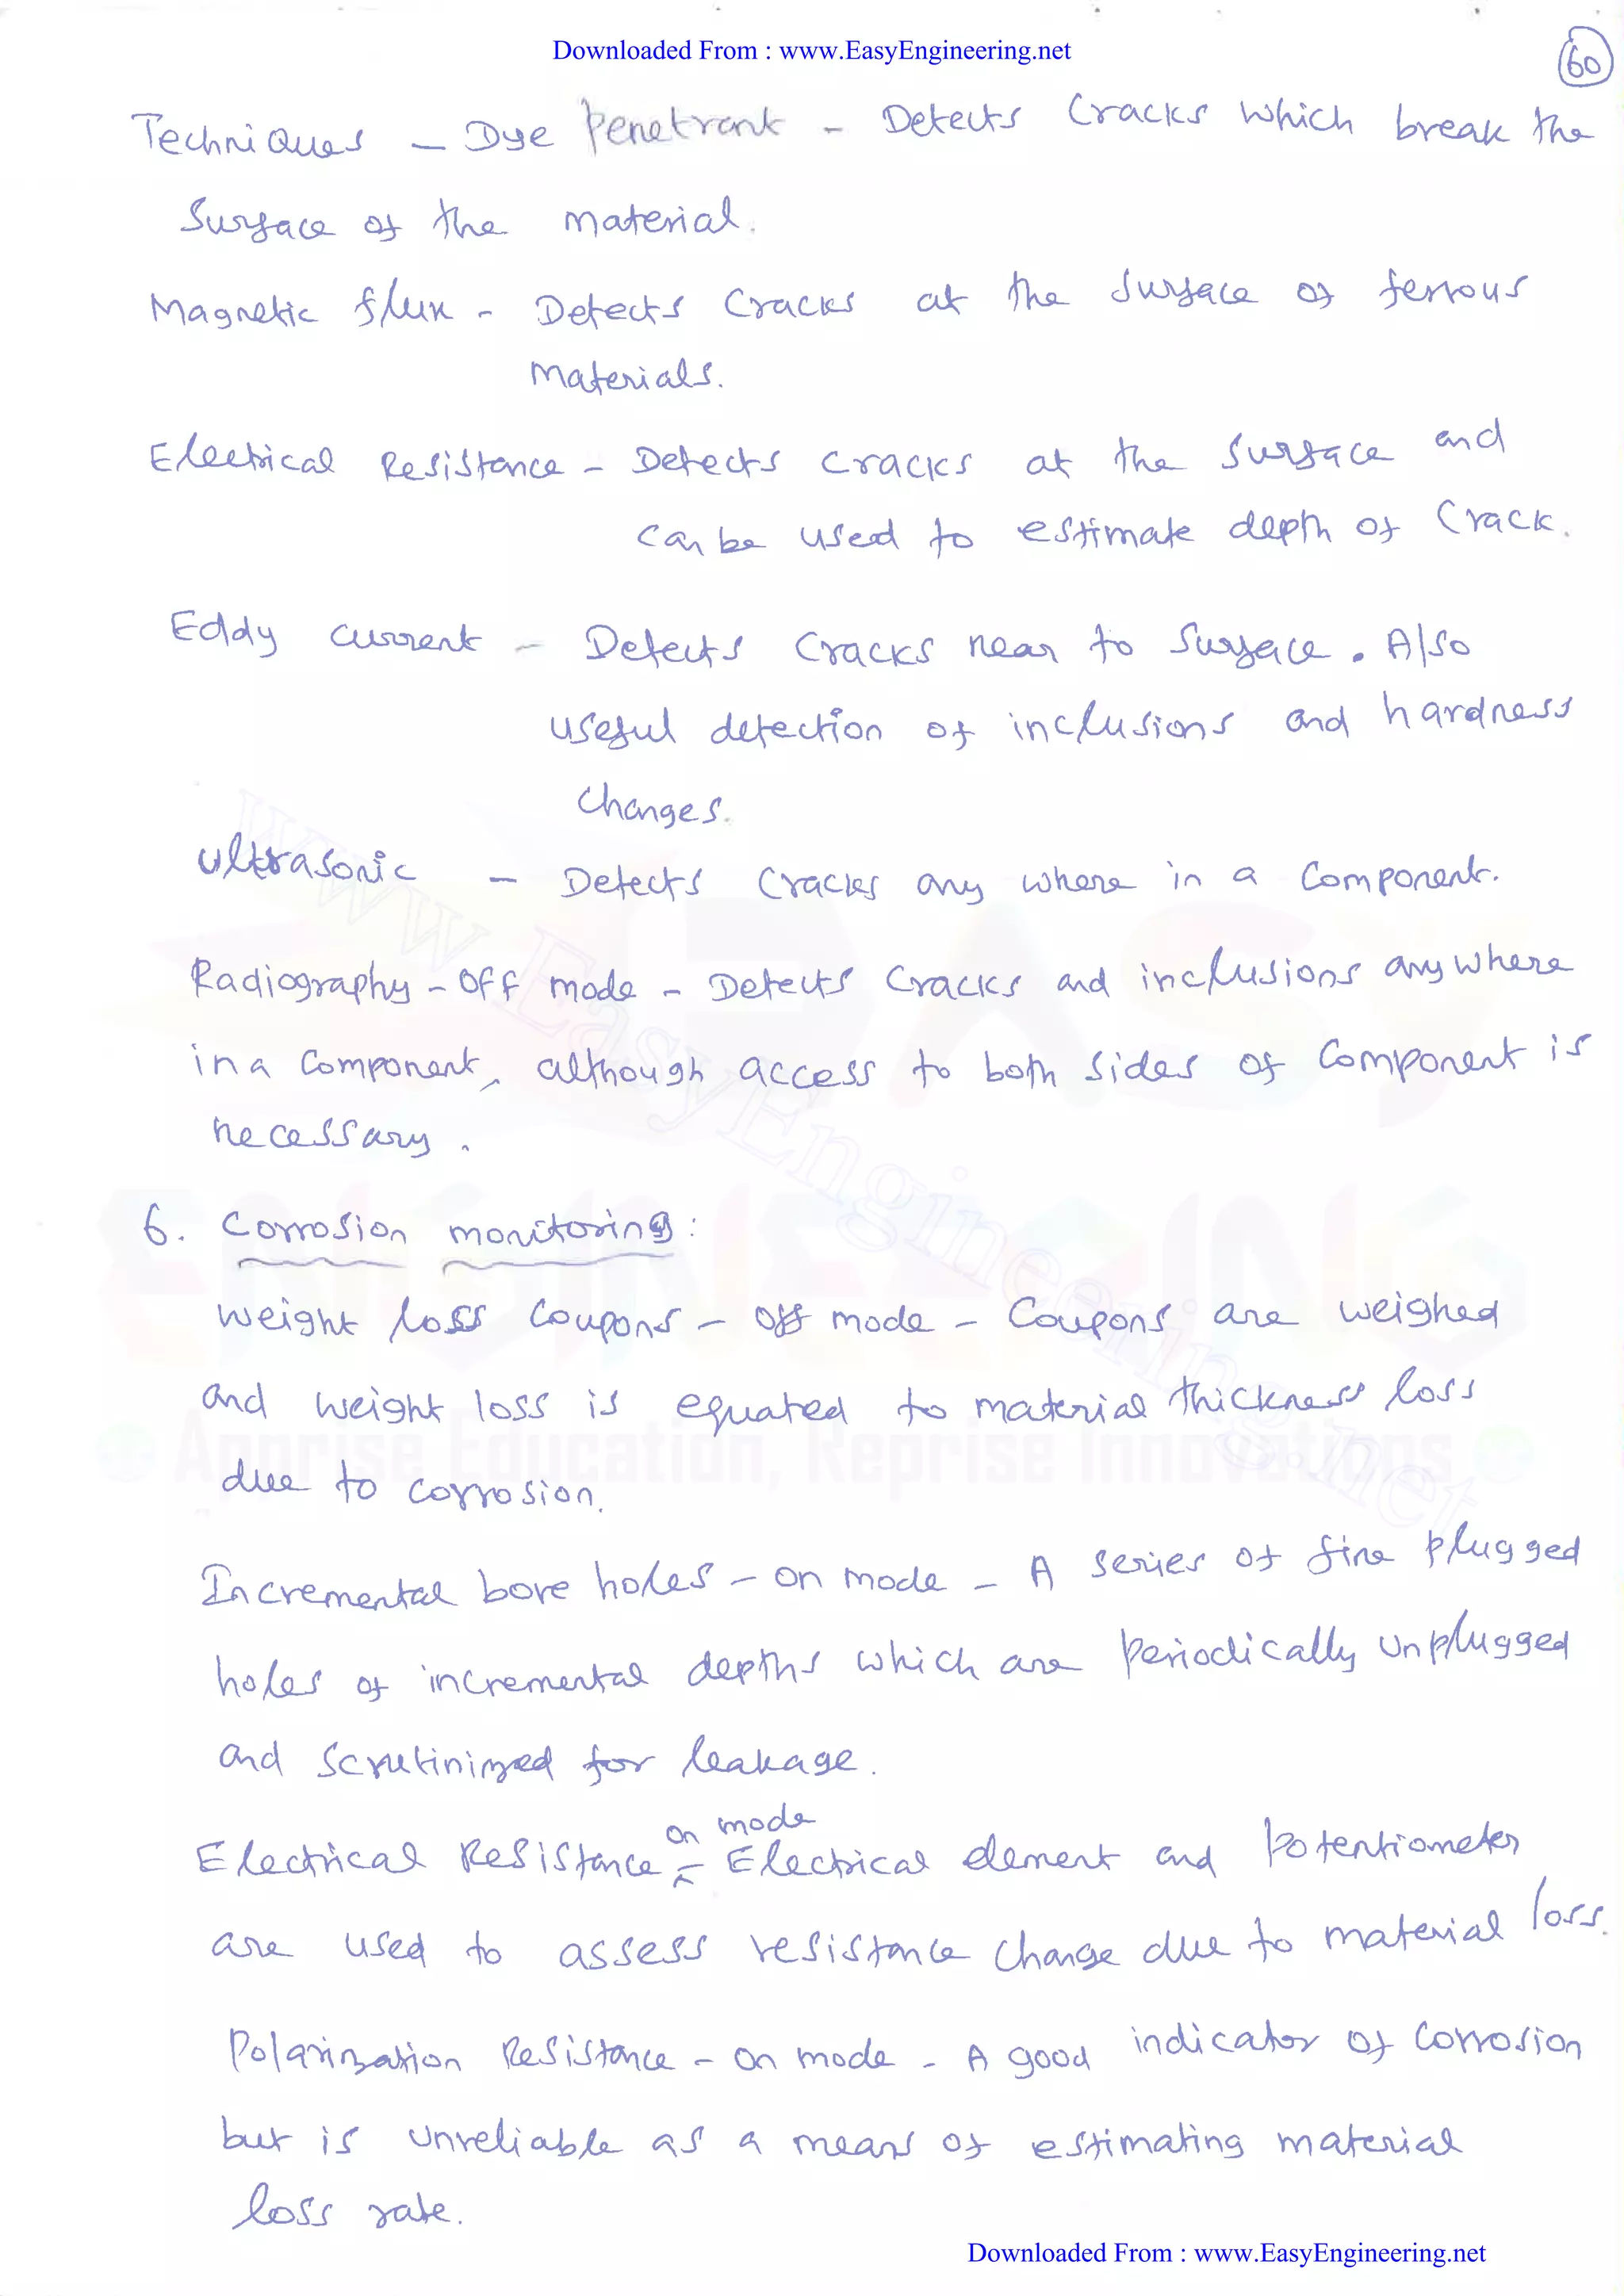 Downloaded From : www.EasyEngineering.net
60
Techniques - Dye Penetrant - Detects Cracks which break the
Surface of the material.
Magnetic flux - Detects Cracks at the surface of ferrous
Materials.
Electrical Resistance - Detects cracks at the surface and
can be used to estimate depth of Crack.
Eddy current - Detects Cracks near to surface. Also
useful detection of inclusions and hardness
Changes.
ultrasonic - Detects Cracks any where in a Component.
Radiography - Off mode - Detects Cracks and inclusions anywhere
in a Component, although access to both sides of Component is
necessary.
6. Corrosion monitoring:
Weight loss Coupons - Off mode - Coupons are weighed
and weight loss is equated to material thickness loss
due to corrosion.
Incremental bore holes - on mode - A series of fine plugged
holes of incremental depths which are Periodically Unplugged
and Scrutinized for leakage.
Electrical Resistance - on mode - Electrical element and Potentiometer
are used to assess resistance change due to material loss.
Polarization Resistance - on mode - A good indicator of Corrosion
but is unreliable as a means of estimating material
loss rate.
www.EasyEngineering.net
EASY
ENGINEERING
Apprise Education, Reprise Innovations
Downloaded From : www.EasyEngineering.net